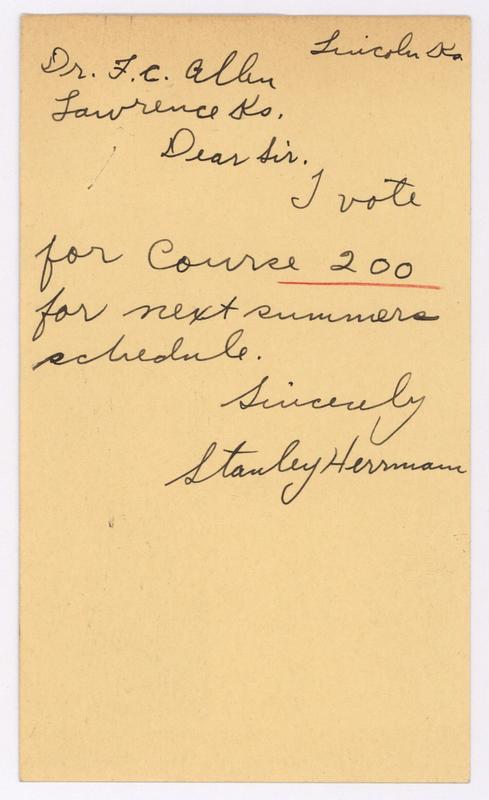 Lincoln Ks
Dr. F.C. Allen
Lawrence Ks.
Dear Sir.
I vote
for Course 200
for next summers
schedule.
Sincerely
Stanley Herrmann